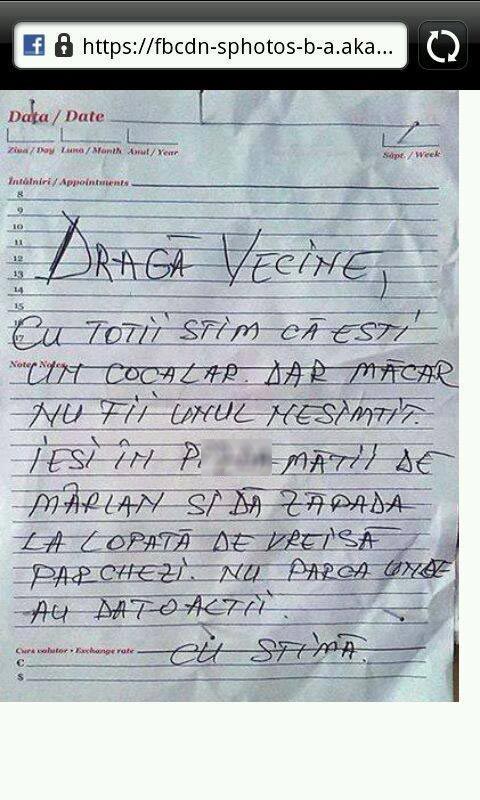 https://fbcdn-sphotos-b-a.aka...
Data / Date
Ziua / Day Luna / Month Anul / Year
Săpt. / Week
Întâlniri / Appointments
8
9
10
11
12
13
14
15
16
17
DRAGĂ VECINE,
CU TOTII STIM CĂ ESTI
Note/ Notes
UN COCALAR. DAR MĂCAR
NU FII UNUL NESIMTIT.
IESI ÎN MĂTII DE
MÂRLAN SI DĂ ZĂPADA
LA LOPATĂ DE VREI SĂ
PARCHEZI. NU PARCA UNDE
AU DAT-O ALTII.
Curs valutar • Exchange rate
CU STIMĂ.
€
$